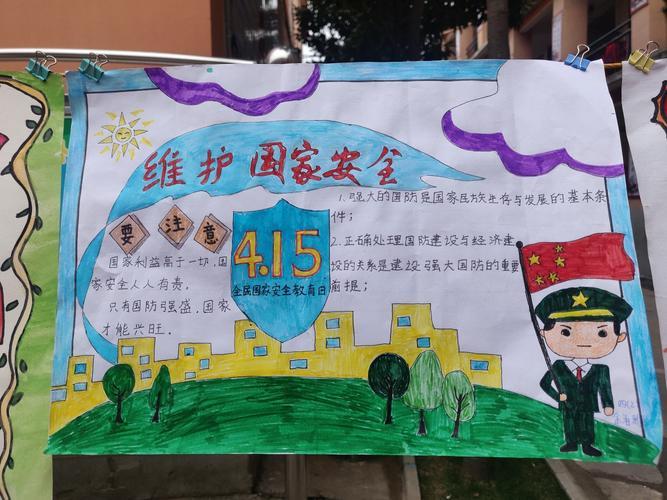 维护国家安全
要注意
国家利益高于一切,国
家安全人人有责。
只有国防强盛,国家
才能兴旺。
4.15
全民国家安全教育日
1.强大的国防是国家民族生存与发展的基本条
件;
2.正确处理国防建设与经济建
设的关系是建设强大国防的重要
前提;